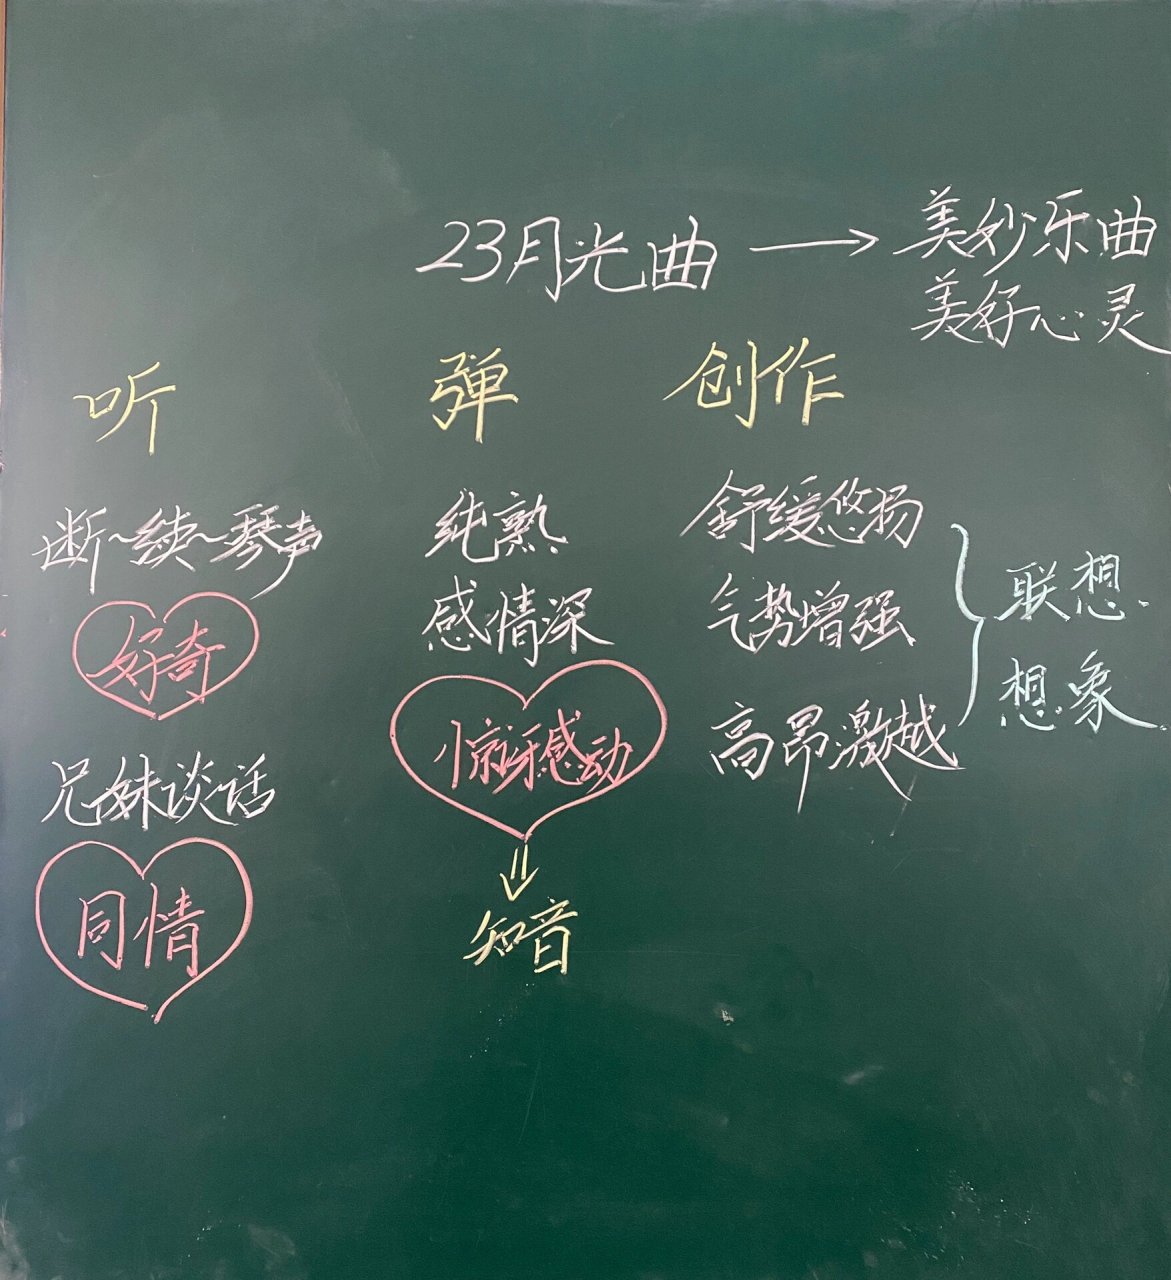 23月光曲 → 美妙乐曲
美好心灵
听
断~续~琴声
好奇
兄妹谈话
同情
弹
纯熟
感情深
惊讶感动
知音
创作
舒缓悠扬
气势增强
高昂激越
联想
想象